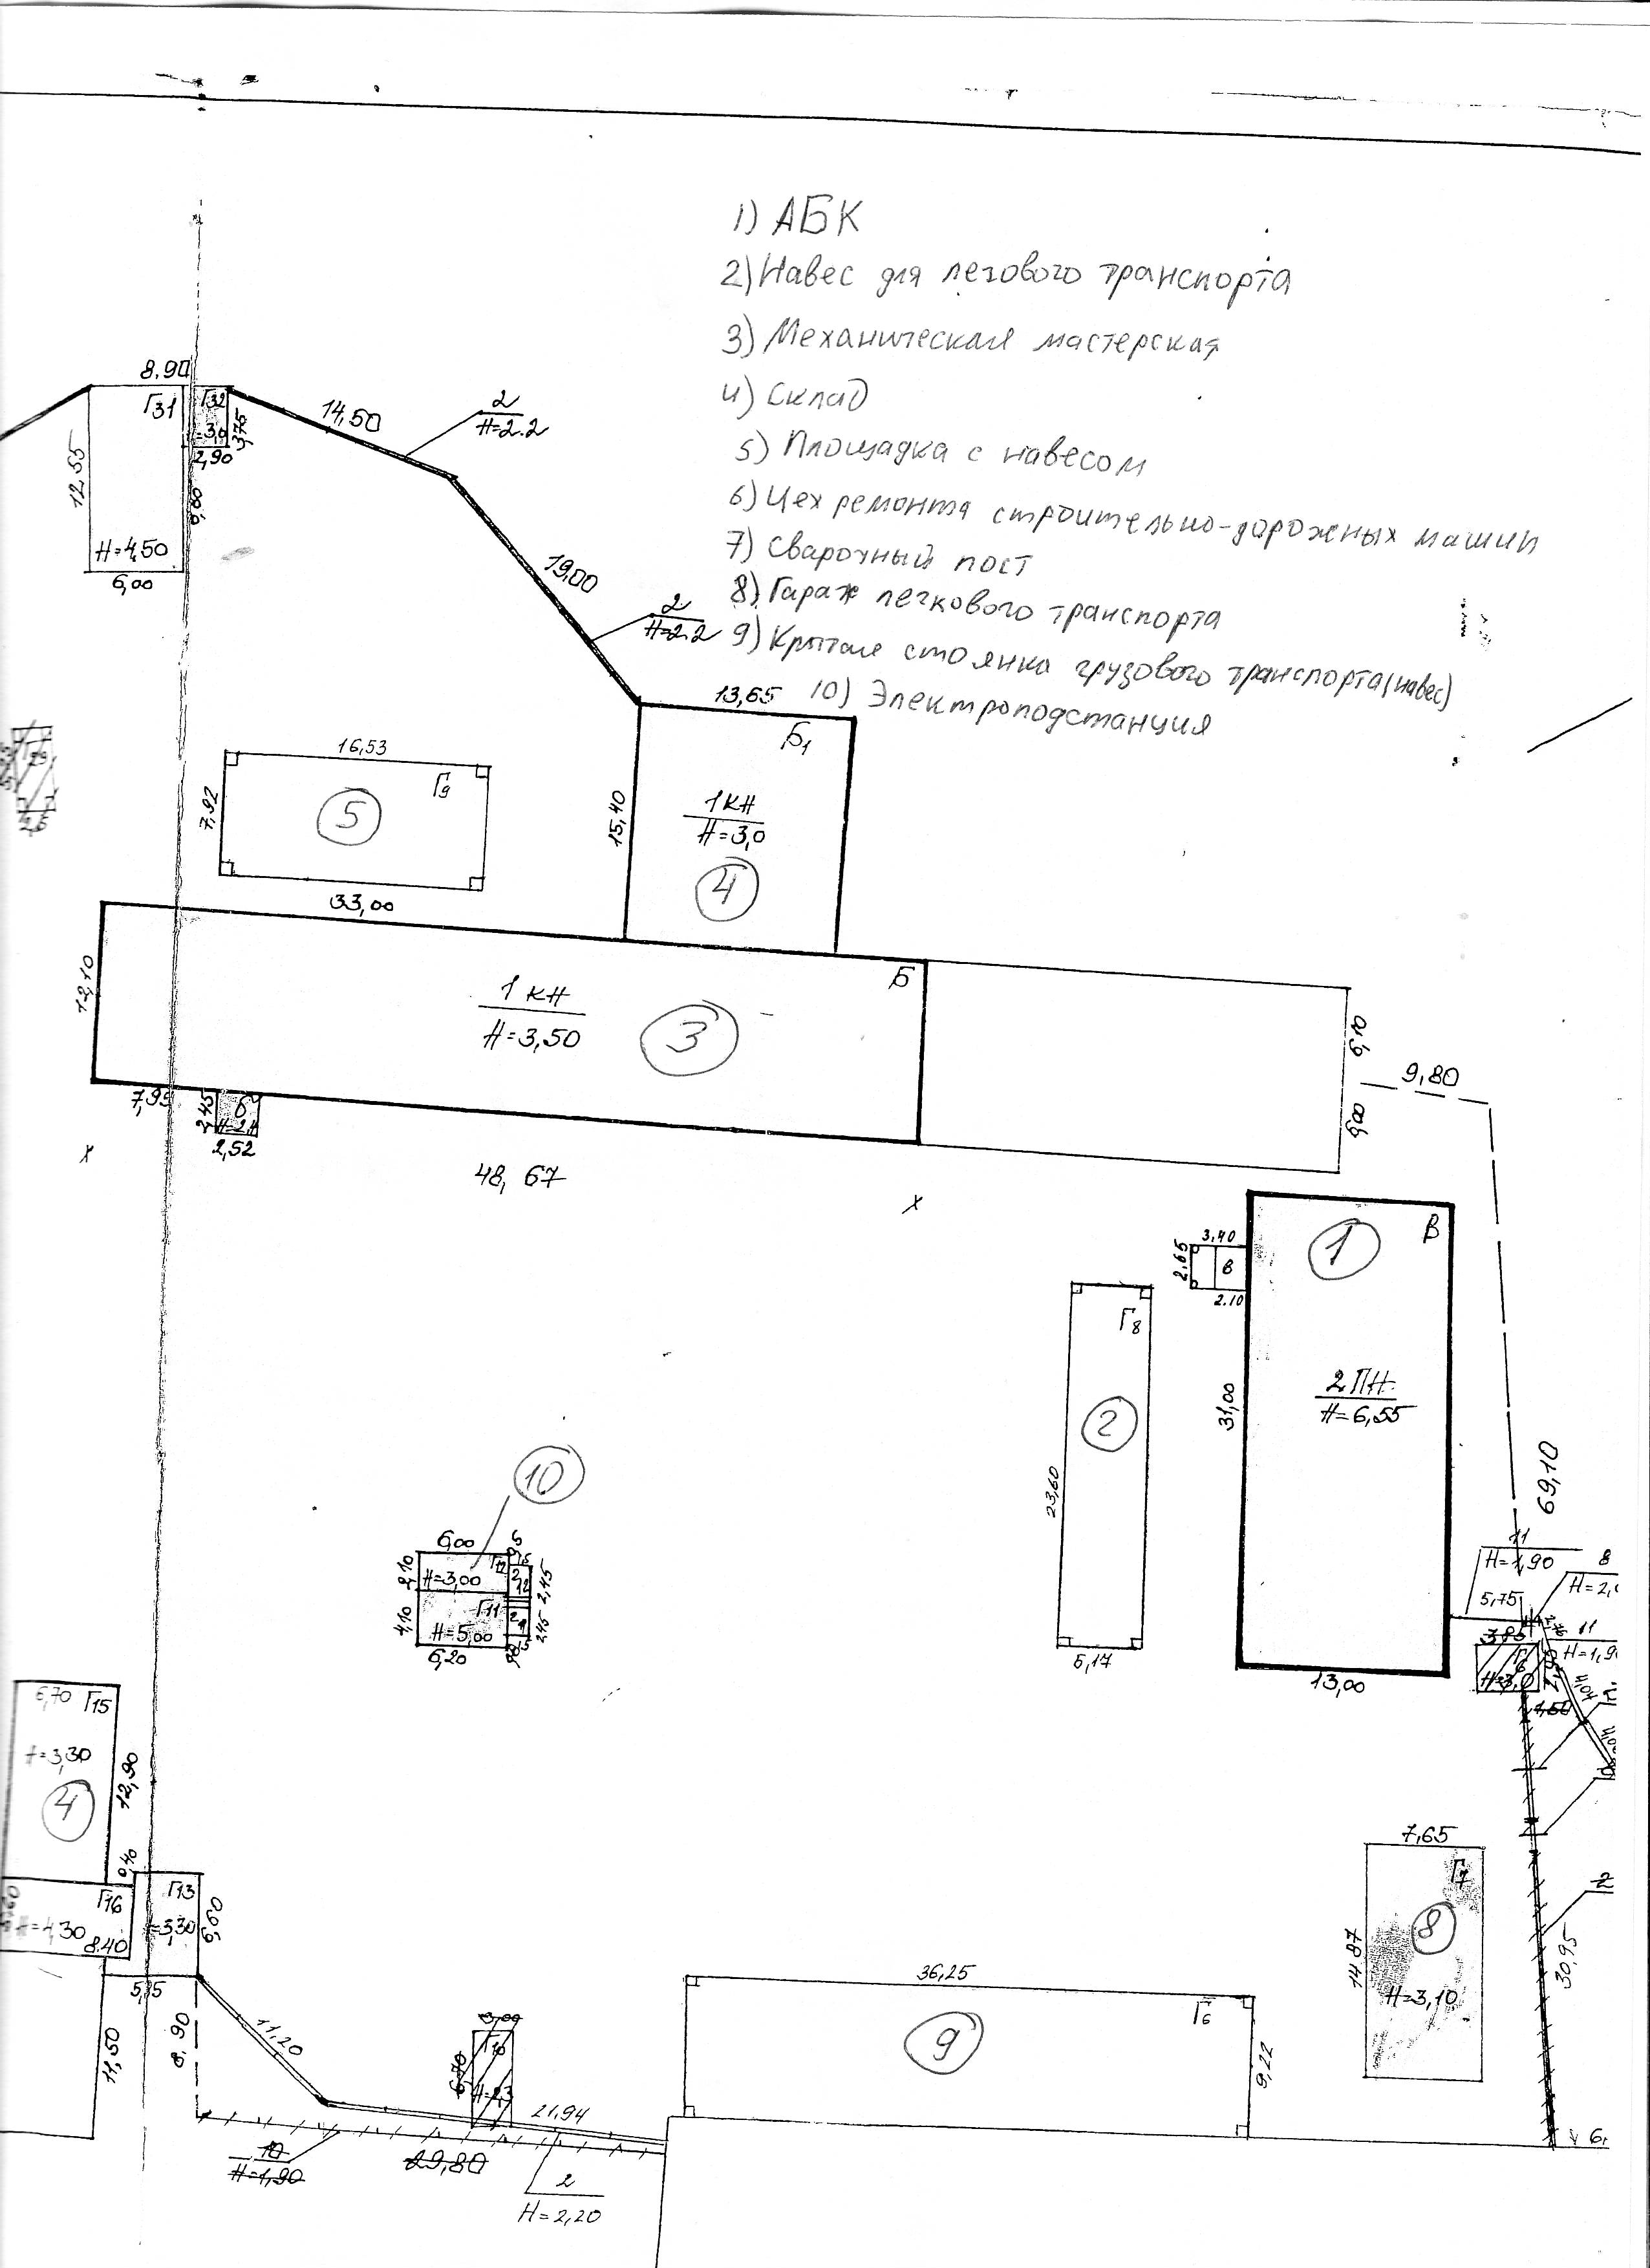 1) АБК
2) Навес для легового транспорта
3) Механическая мастерская
4) Склад
5) Площадка с навесом
6) Цех ремонта строительно-дорожных машин
7) Сварочный пост
8) Гараж легкового транспорта
9) Крытая стоянка грузового транспорта (навес)
10) Электроподстанция
8,90
Г31
Г32
3,75
2,90
12,55
H=4,50
6,00
14,50
2
H=2.2
19,00
2
H=2.2
13,65
Б1
15,40
1КН
H=3,0
4
16,53
Г9
7,92
5
33,00
12,10
1 КН
H=3,50
3
Б
6,10
6,00
9,80
7,95
2,45
2,52
48,67
x
x
1
В
3,40
2,65
в
2.10
31,00
2ПН
H=6,55
13,00
Г8
2
23,60
5,17
69,10
10
6,00
2,10
H=3,00
Г12
2,45
4,10
Г11
H=5,00
2,45
6,20
11
H=1,90
8
5,75
3,85
11
4,04
1,50
6,70
Г15
=3,30
12,90
4
0,40
Г16
8.40
Г13
=3,30
6,60
11,50
8,90
11,20
3,00
Г10
6,70
21,94
10
H=1,90
29,80
2
H=2,20
36,25
Г6
9
9,22
7,65
Г7
8
14,87
H=3,10
2
30,95
6,